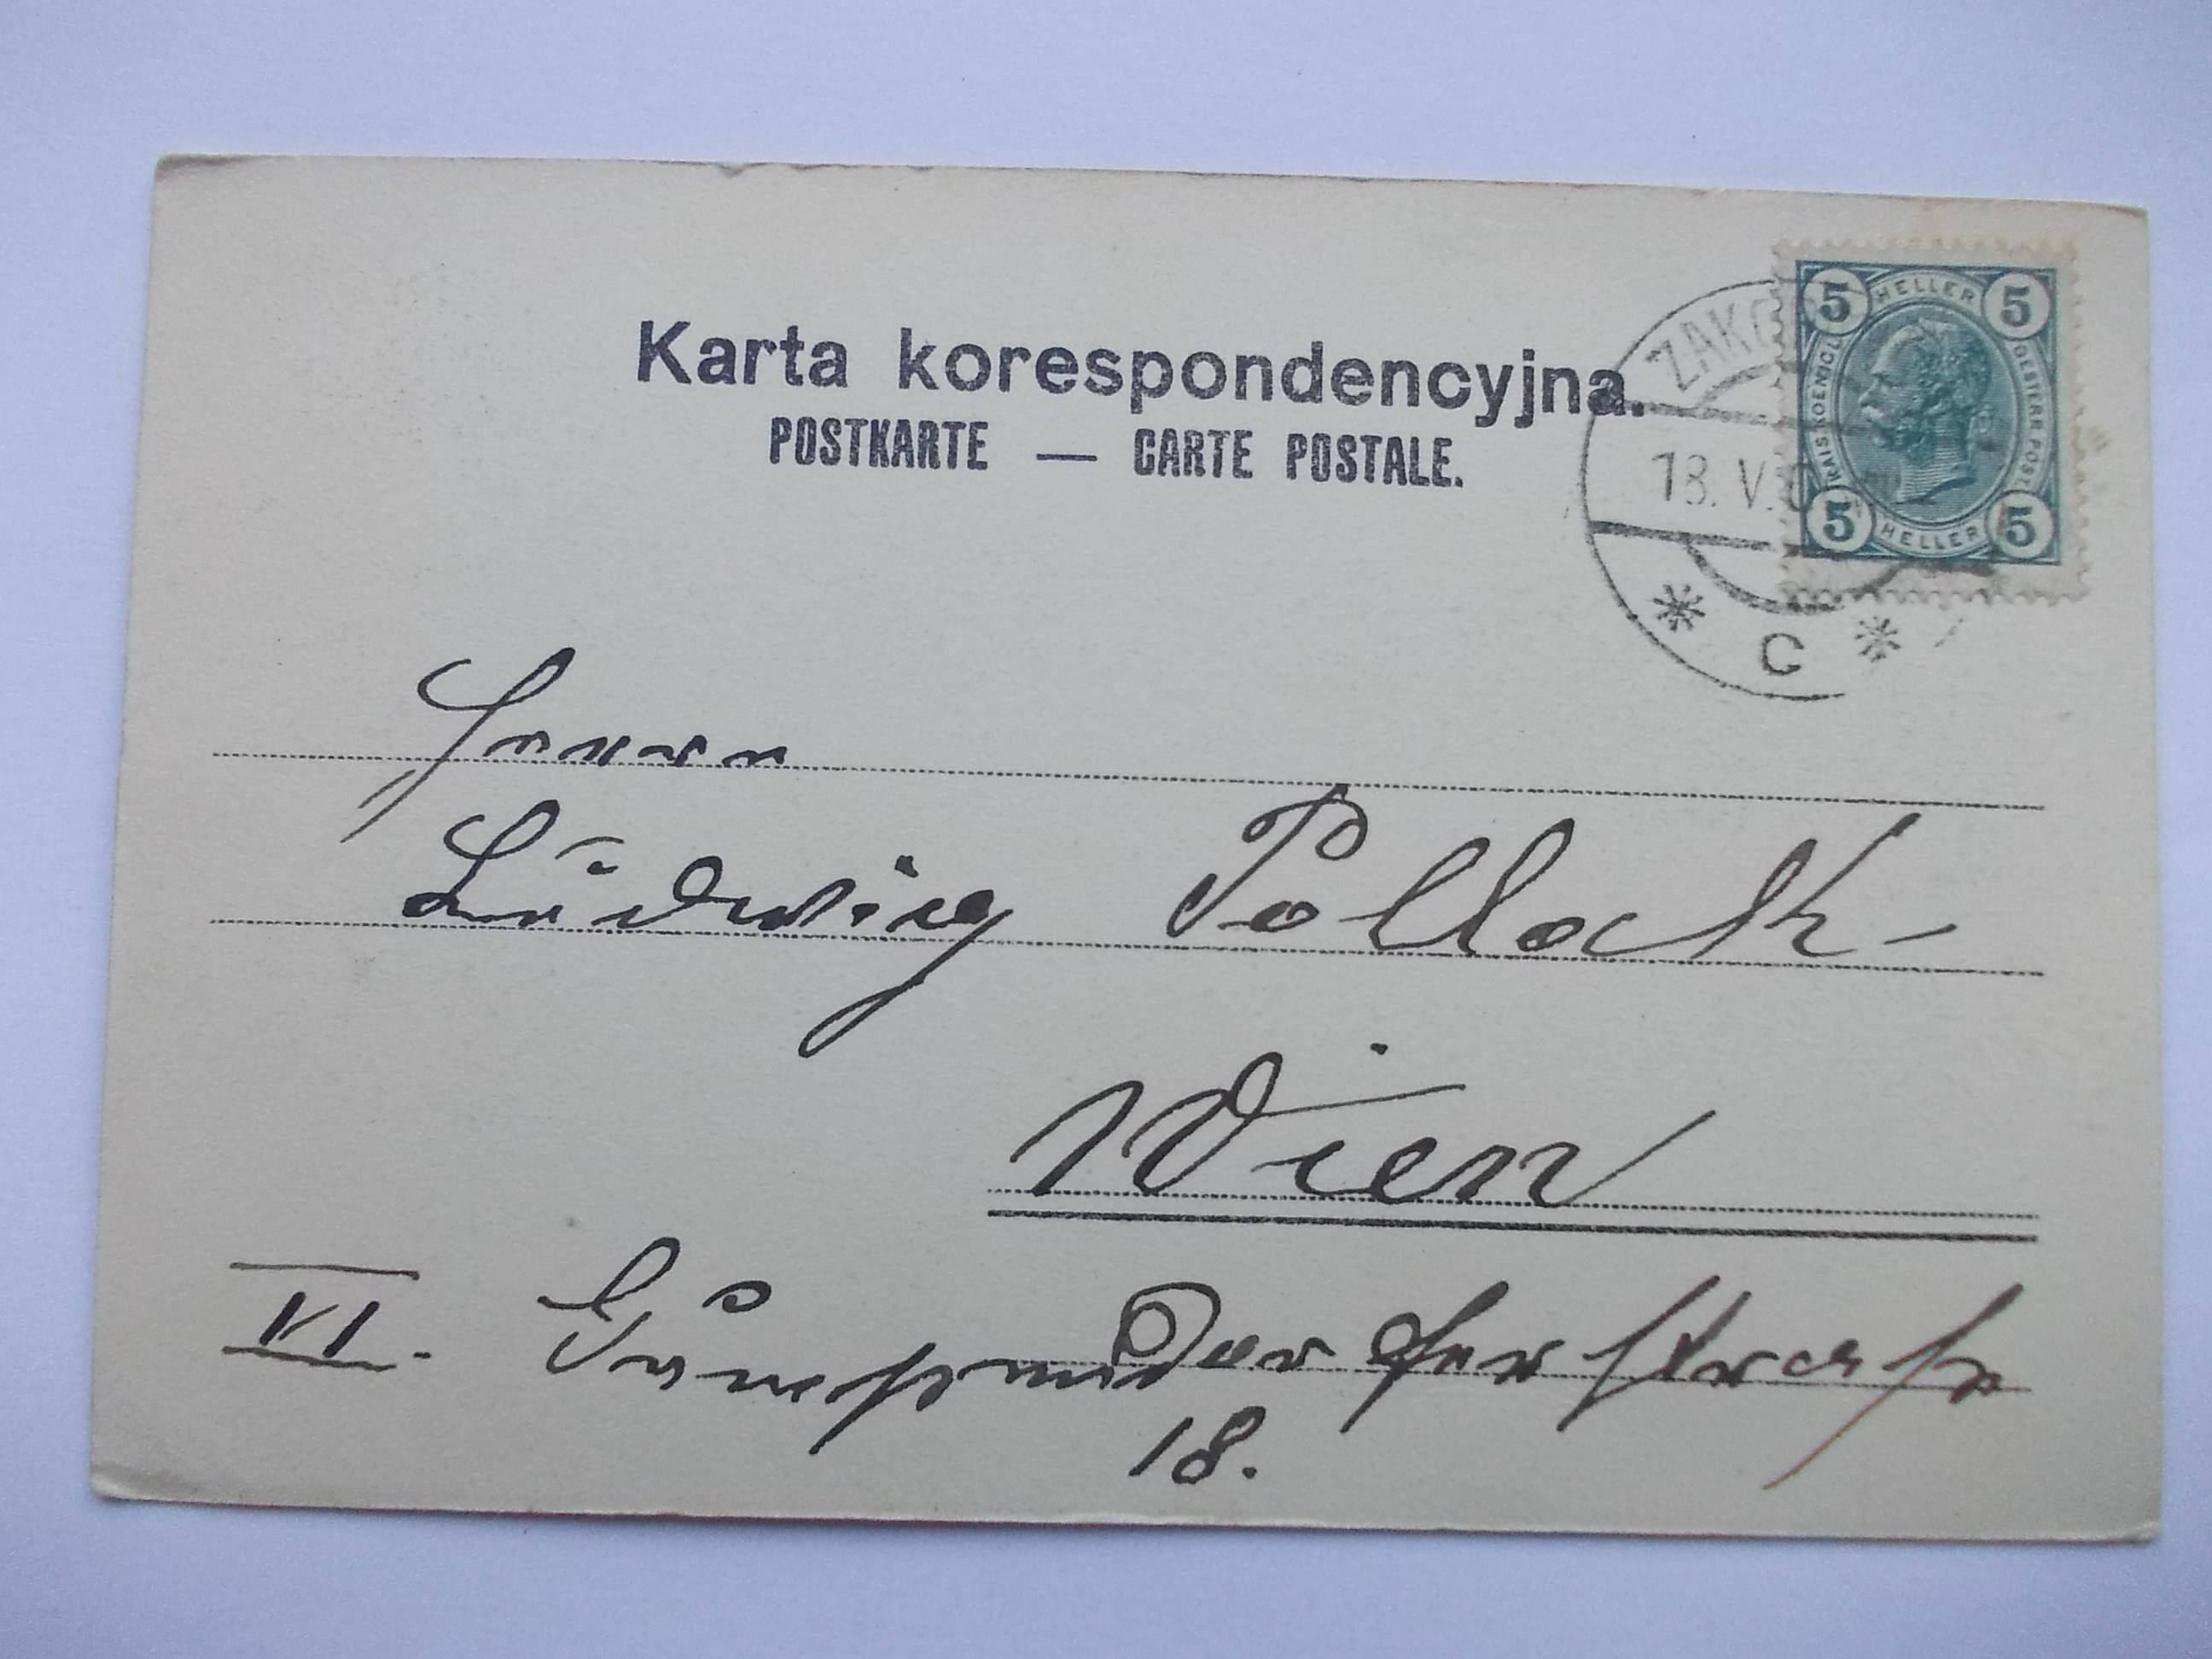 Karta korespondencyjna.
POSTKARTE — CARTE POSTALE.
5 HELLER 5
KAIS. KOENIGL. OESTERR. POST
5 HELLER 5
ZAKO
18. V. 0
* C *
Herrn
Ludwig Pollack
Wien
VI. Gumpendorferstrasse
18.